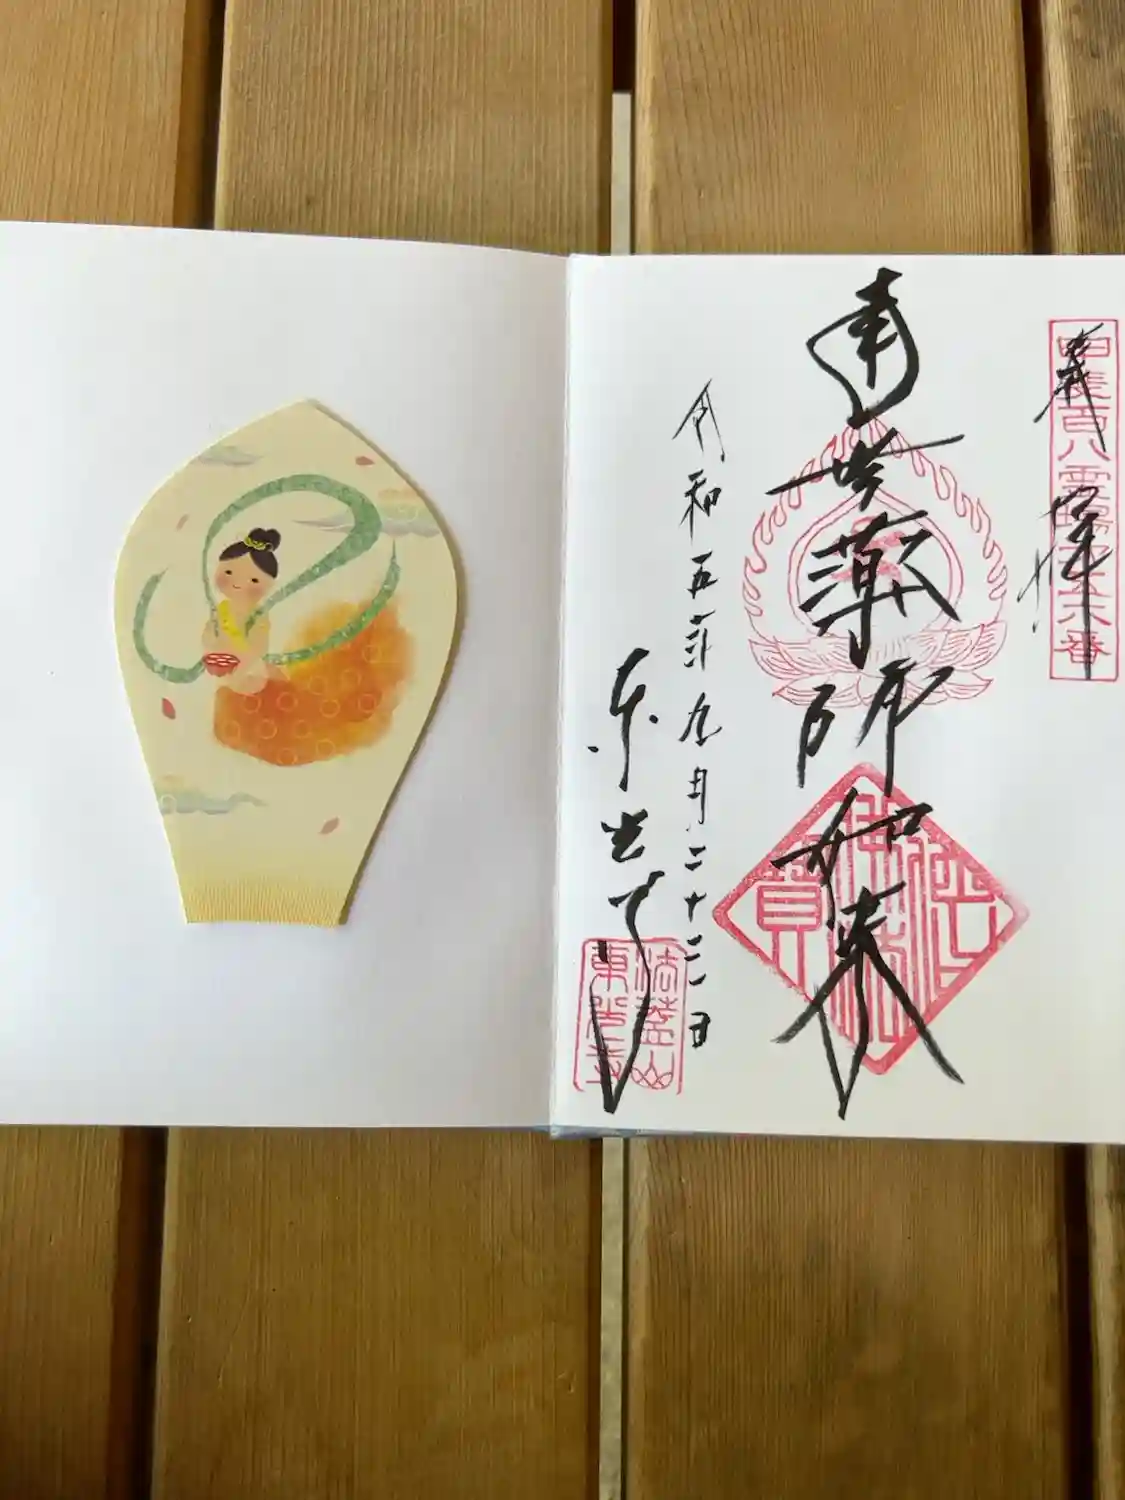 奉拝
甲斐百八霊場
六番
南無薬師如来
佛法僧寶
令和五年九月二十二日
東光寺
法蓋山
東光寺